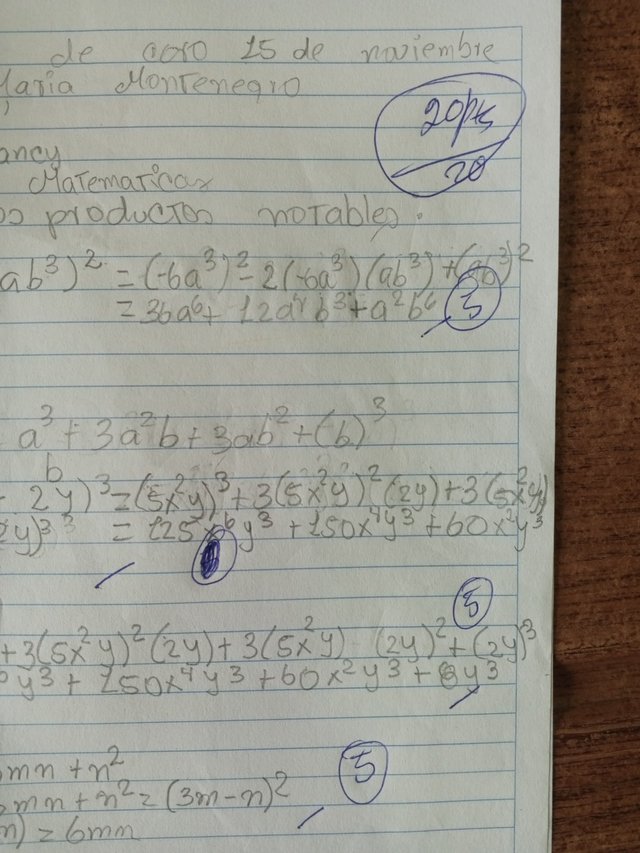 de ooro 15 de noviembre
Maria Montenegro
20pts
20
ancy
Matematicas
os productos notables.
ab³)² = (-6a³)² - 2(-6a³)(ab³) + (ab³)²
= 36a⁶ + 12a⁴b³ + a²b⁶
5
a³ + 3a²b + 3ab² + (b)³
b
2y)³ = (5x²y)³ + 3(5x²y)²(2y) + 3(5x²y)
2y)³ = 125x⁶y³ + 150x⁴y³ + 60x²y³
5
+ 3(5x²y)²(2y) + 3(5x²y) (2y)² + (2y)³
y³ + 150x⁴y³ + 60x²y³ + 8y³
mn + n²
5
mn + n² = (3m - n)²
n) = 6mn